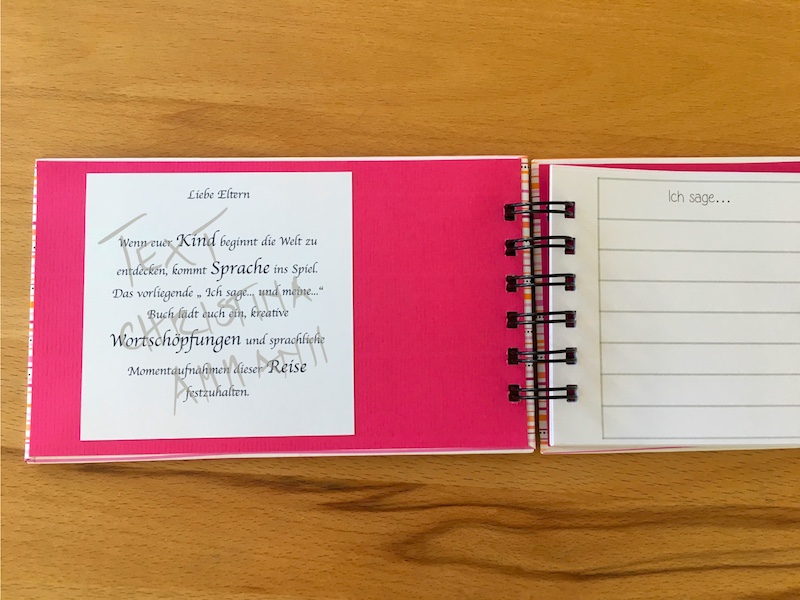 Liebe Eltern
Wenn euer Kind beginnt die Welt zu
entdecken, kommt Sprache ins Spiel.
Das vorliegende „ Ich sage... und meine...“
Buch lädt euch ein, kreative
Wortschöpfungen und sprachliche
Momentaufnahmen dieser Reise
festzuhalten.
TEXT
CHRISTINA
AMMANN
Ich sage...